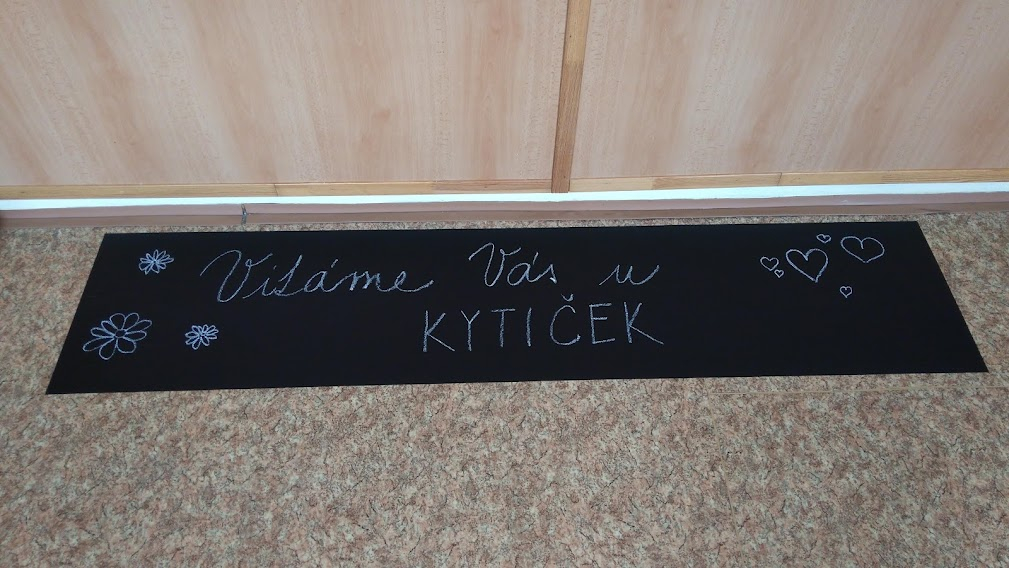 Vítáme Vás u
KYTIČEK